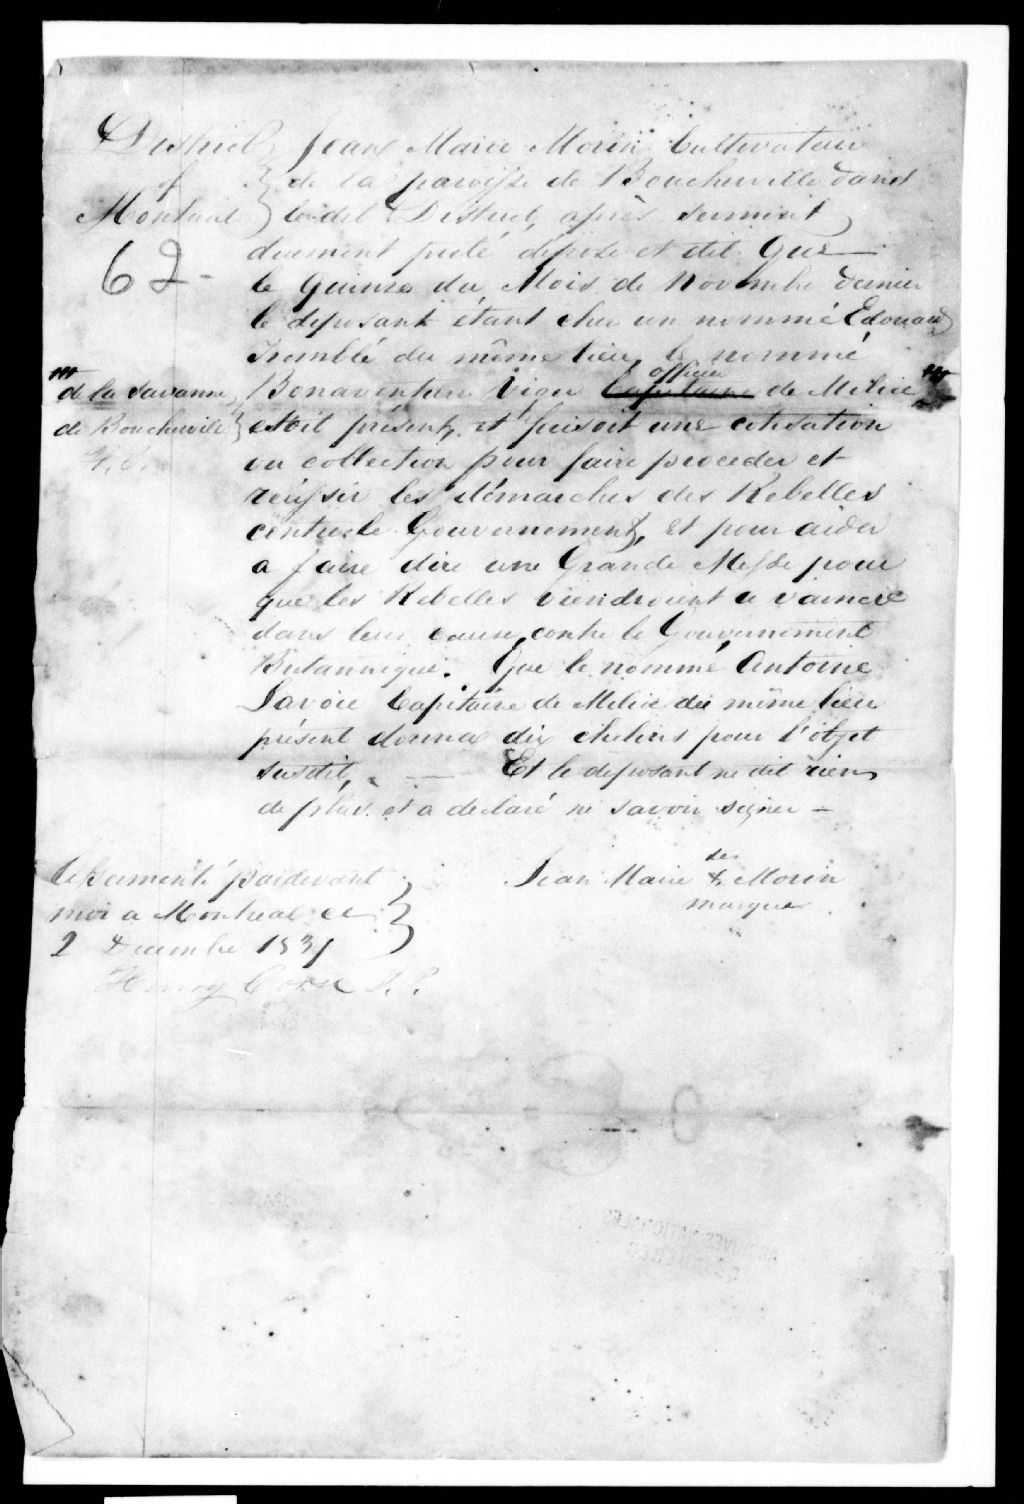 District } Jean Marie Morin Cultivateur
of } de la paroisse de Boucherville dans
Montreal } ledit District, après serment
62- duement preté dépose et dit Que
le Quinze du Mois de Novembre dernier
le deposant étant chez un nommé Edouard
Tremblé du même lieu, le nommé
officier
Bonaventure Viger Capitaine de Milice
de la Savanne
de Boucherville
H.C.
etoit présent, et faisoit une cotisation
ou collection pour faire proceder et
réussir les démarches des Rebelles
contre le Gouvernement, et pour aider
a faire dire une Grande Messe pour
que les Rebelles viendroient a vaincre
dans leur cause contre le Gouvernement
Britannique. Que le nommé Antoine
Savoie Capitaine de Milice du même lieu
présent donna dix chelins pour l'objet
susdit, — Et le deposant ne dit rien
de plus. et a declaré ne savoir signer —
sa
Jean Marie + Morin
marque
Assermenté pardevant }
moi a Montreal ce }
2 Decembre 1837 }
Henry Corse J.P.
ARCHIVES NATIONALES
QUEBEC